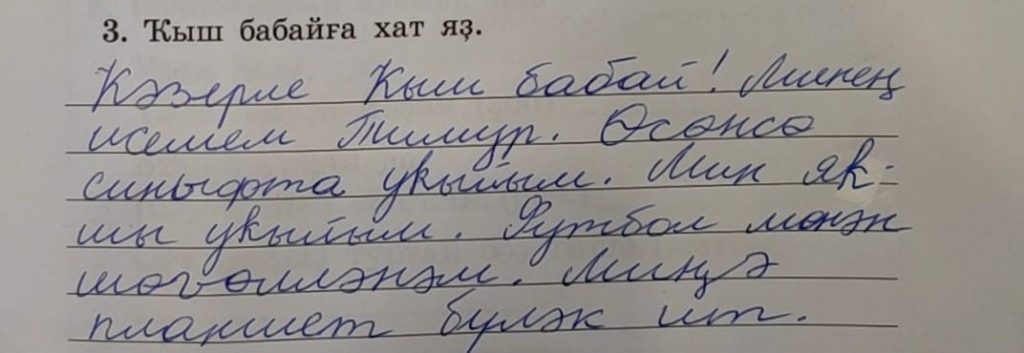 3. Ҡыш бабайға хат яҙ.
Кәзерле Кыш бабай! Минең
исемем Тимур. Өсөнсө
синыфта укыйым. Мин як-
шы укыйым. Футбол менән
шөгөлләнәм. Миңә
планшет бүләк ит.